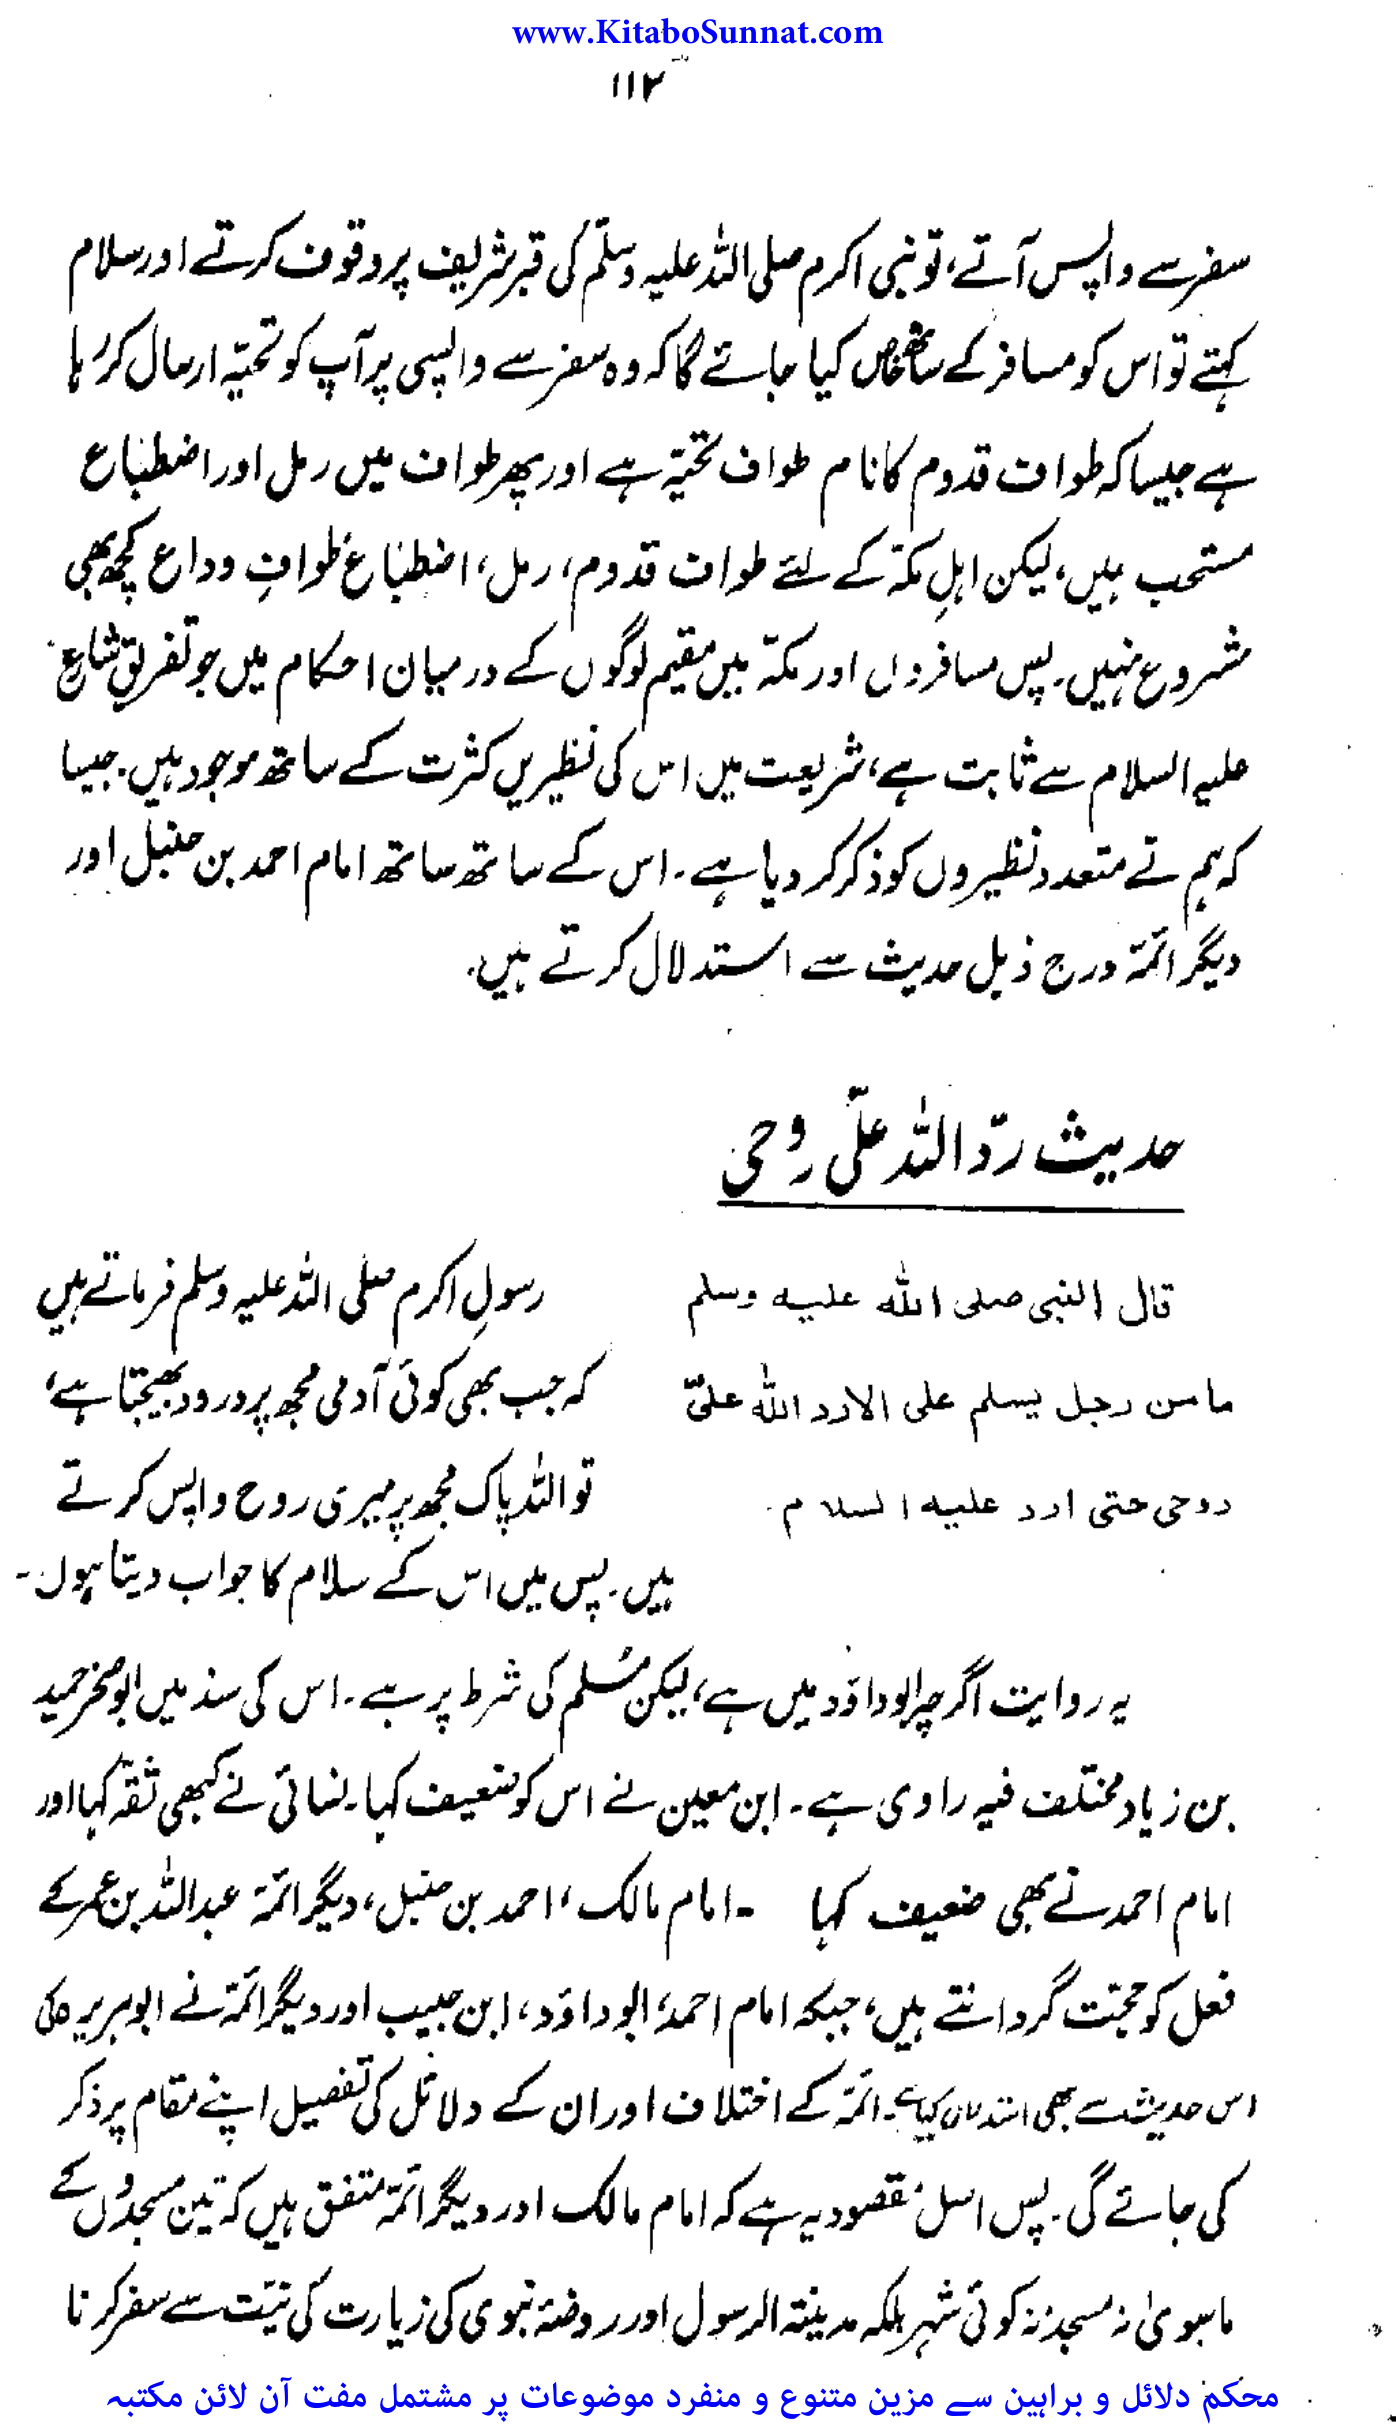 www.KitaboSunnat.com
۱۱۲
سفر سے واپس آتے، تو نبی اکرم صلی اللہ علیہ وسلّم کی قبر شریف پر وقوف کرتے اور سلام
کہتے تو اس کو مسافر کے ساتھ خاص کیا جائے گا کہ وہ سفر سے واپسی پر آپ کو تحیّہ ارسال کر رہا
ہے جیسا کہ طواف قدوم کا نام طواف تحیّہ ہے اور پھر طواف میں رمل اور اضطباع
مستحب ہیں، لیکن اہلِ مکّہ کے لئے طواف قدوم، رمل، اضطباع، طوافِ وداع کچھ بھی
مشروع نہیں۔ پس مسافروں اور مکّہ میں مقیم لوگوں کے درمیان احکام میں جو تفریق شارع
علیہ السلام سے ثابت ہے، شریعت میں اس کی نظیریں کثرت کے ساتھ موجود ہیں۔ جیسا
کہ ہم نے متعدد نظیروں کو ذکر کر دیا ہے۔ اس کے ساتھ ساتھ امام احمد بن حنبل اور
دیگر ائمّہ درج ذیل حدیث سے استدلال کرتے ہیں۔
حدیث ردّ اللہ علیّ روحی
قال النبی صلی اللہ علیہ وسلم
ما من رجل یسلم علی الا رد اللہ علیّ
روحی حتی ارد علیہ السلام۔
رسولِ اکرم صلی اللہ علیہ وسلم فرماتے ہیں
کہ جب بھی کوئی آدمی مجھ پر درود بھیجتا ہے،
تو اللہ پاک مجھ پر میری روح واپس کرتے
ہیں۔ پس میں اس کے سلام کا جواب دیتا ہوں۔
یہ روایت اگرچہ ابوداؤد میں ہے، لیکن مُسلم کی شرط پر ہے۔ اس کی سند میں ابوصخر حمید
بن زیاد مختلف فیہ راوی ہے۔ ابن معین نے اس کو ضعیف کہا۔ نسائی نے کبھی ثقہ کہا اور
امام احمد نے بھی ضعیف کہا ۔ امام مالک، احمد بن حنبل، دیگر ائمّہ عبداللہ بن عمر کے
فعل کو حجّت گردانتے ہیں، جبکہ امام احمد، ابوداؤد، ابن حبیب اور دیگر ائمّہ نے ابوہریرہ کی
اس حدیث سے بھی استدلال کیا ہے۔ ائمّہ کے اختلاف اور ان کے دلائل کی تفصیل اپنے مقام پر ذکر
کی جائے گی۔ پس اصل مقصود یہ ہے کہ امام مالک اور دیگر ائمّہ متفق ہیں کہ تین مسجدوں کے
ماسویٰ نہ مسجد نہ کوئی شہر بلکہ مدینۃ الرسول اور روضۂ نبوی کی زیارت کی نیّت سے سفر کرنا
محکم دلائل و براہین سے مزین متنوع و منفرد موضوعات پر مشتمل مفت آن لائن مکتبہ